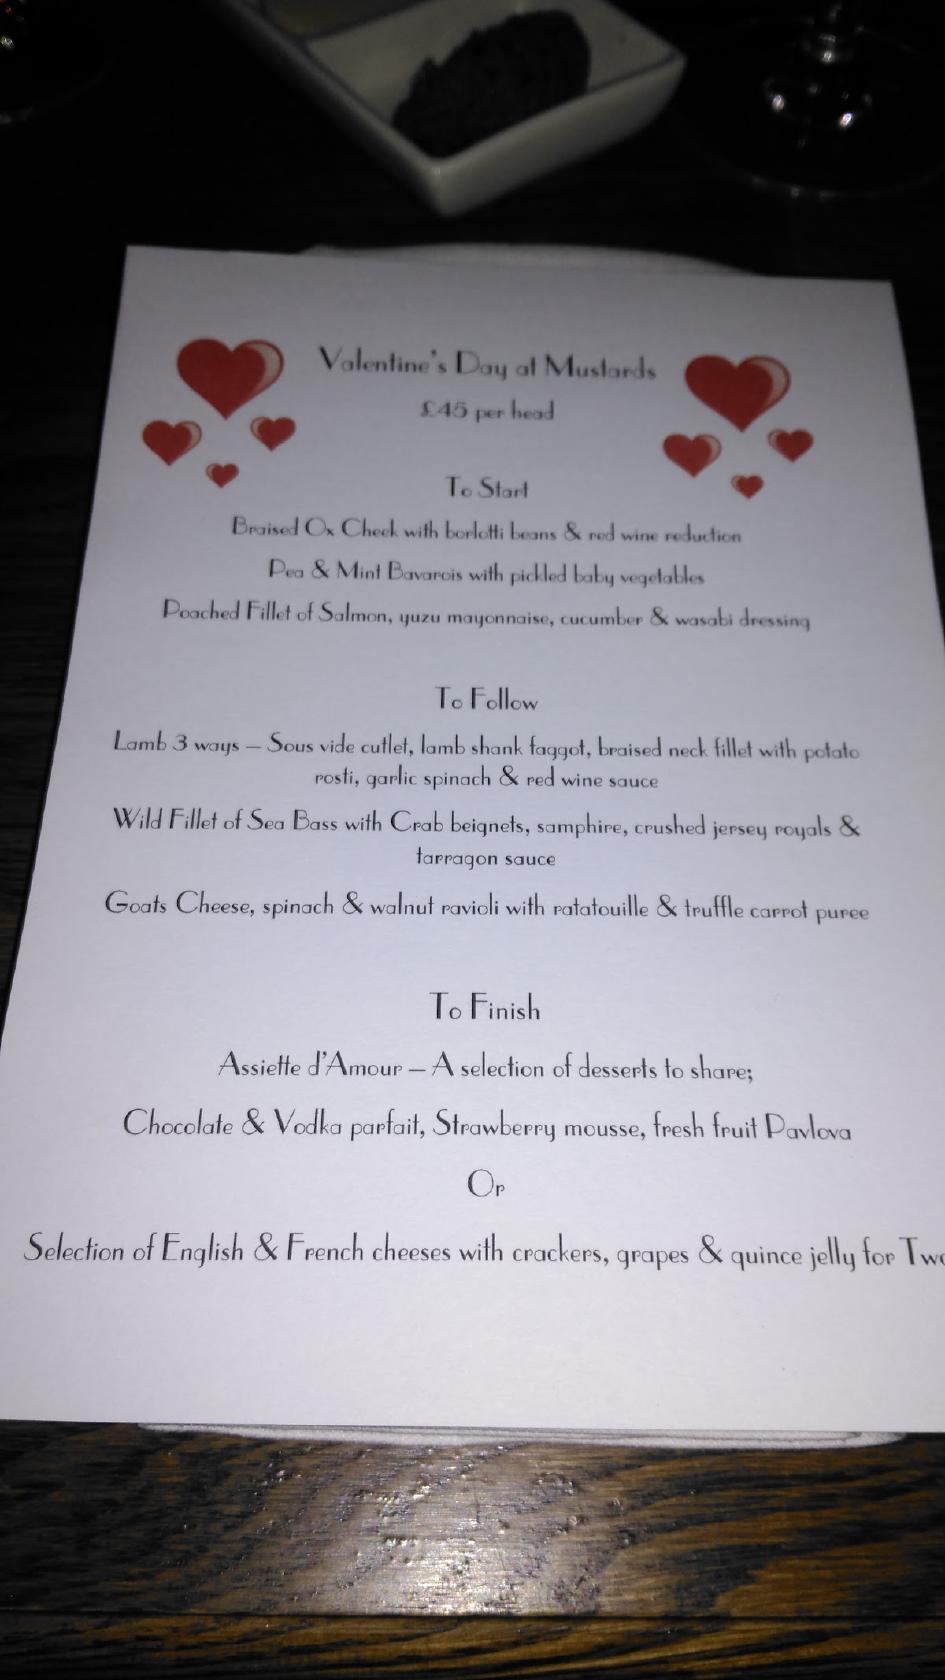 Valentine's Day at Mustards
£45 per head
To Start
Braised Ox Cheek with borlotti beans & red wine reduction
Pea & Mint Bavarois with pickled baby vegetables
Poached Fillet of Salmon, yuzu mayonnaise, cucumber & wasabi dressing
To Follow
Lamb 3 ways – Sous vide cutlet, lamb shank faggot, braised neck fillet with potato
rosti, garlic spinach & red wine sauce
Wild Fillet of Sea Bass with Crab beignets, samphire, crushed jersey royals &
tarragon sauce
Goats Cheese, spinach & walnut ravioli with ratatouille & truffle carrot puree
To Finish
Assiette d'Amour – A selection of desserts to share;
Chocolate & Vodka parfait, Strawberry mousse, fresh fruit Pavlova
Or
Selection of English & French cheeses with crackers, grapes & quince jelly for Two